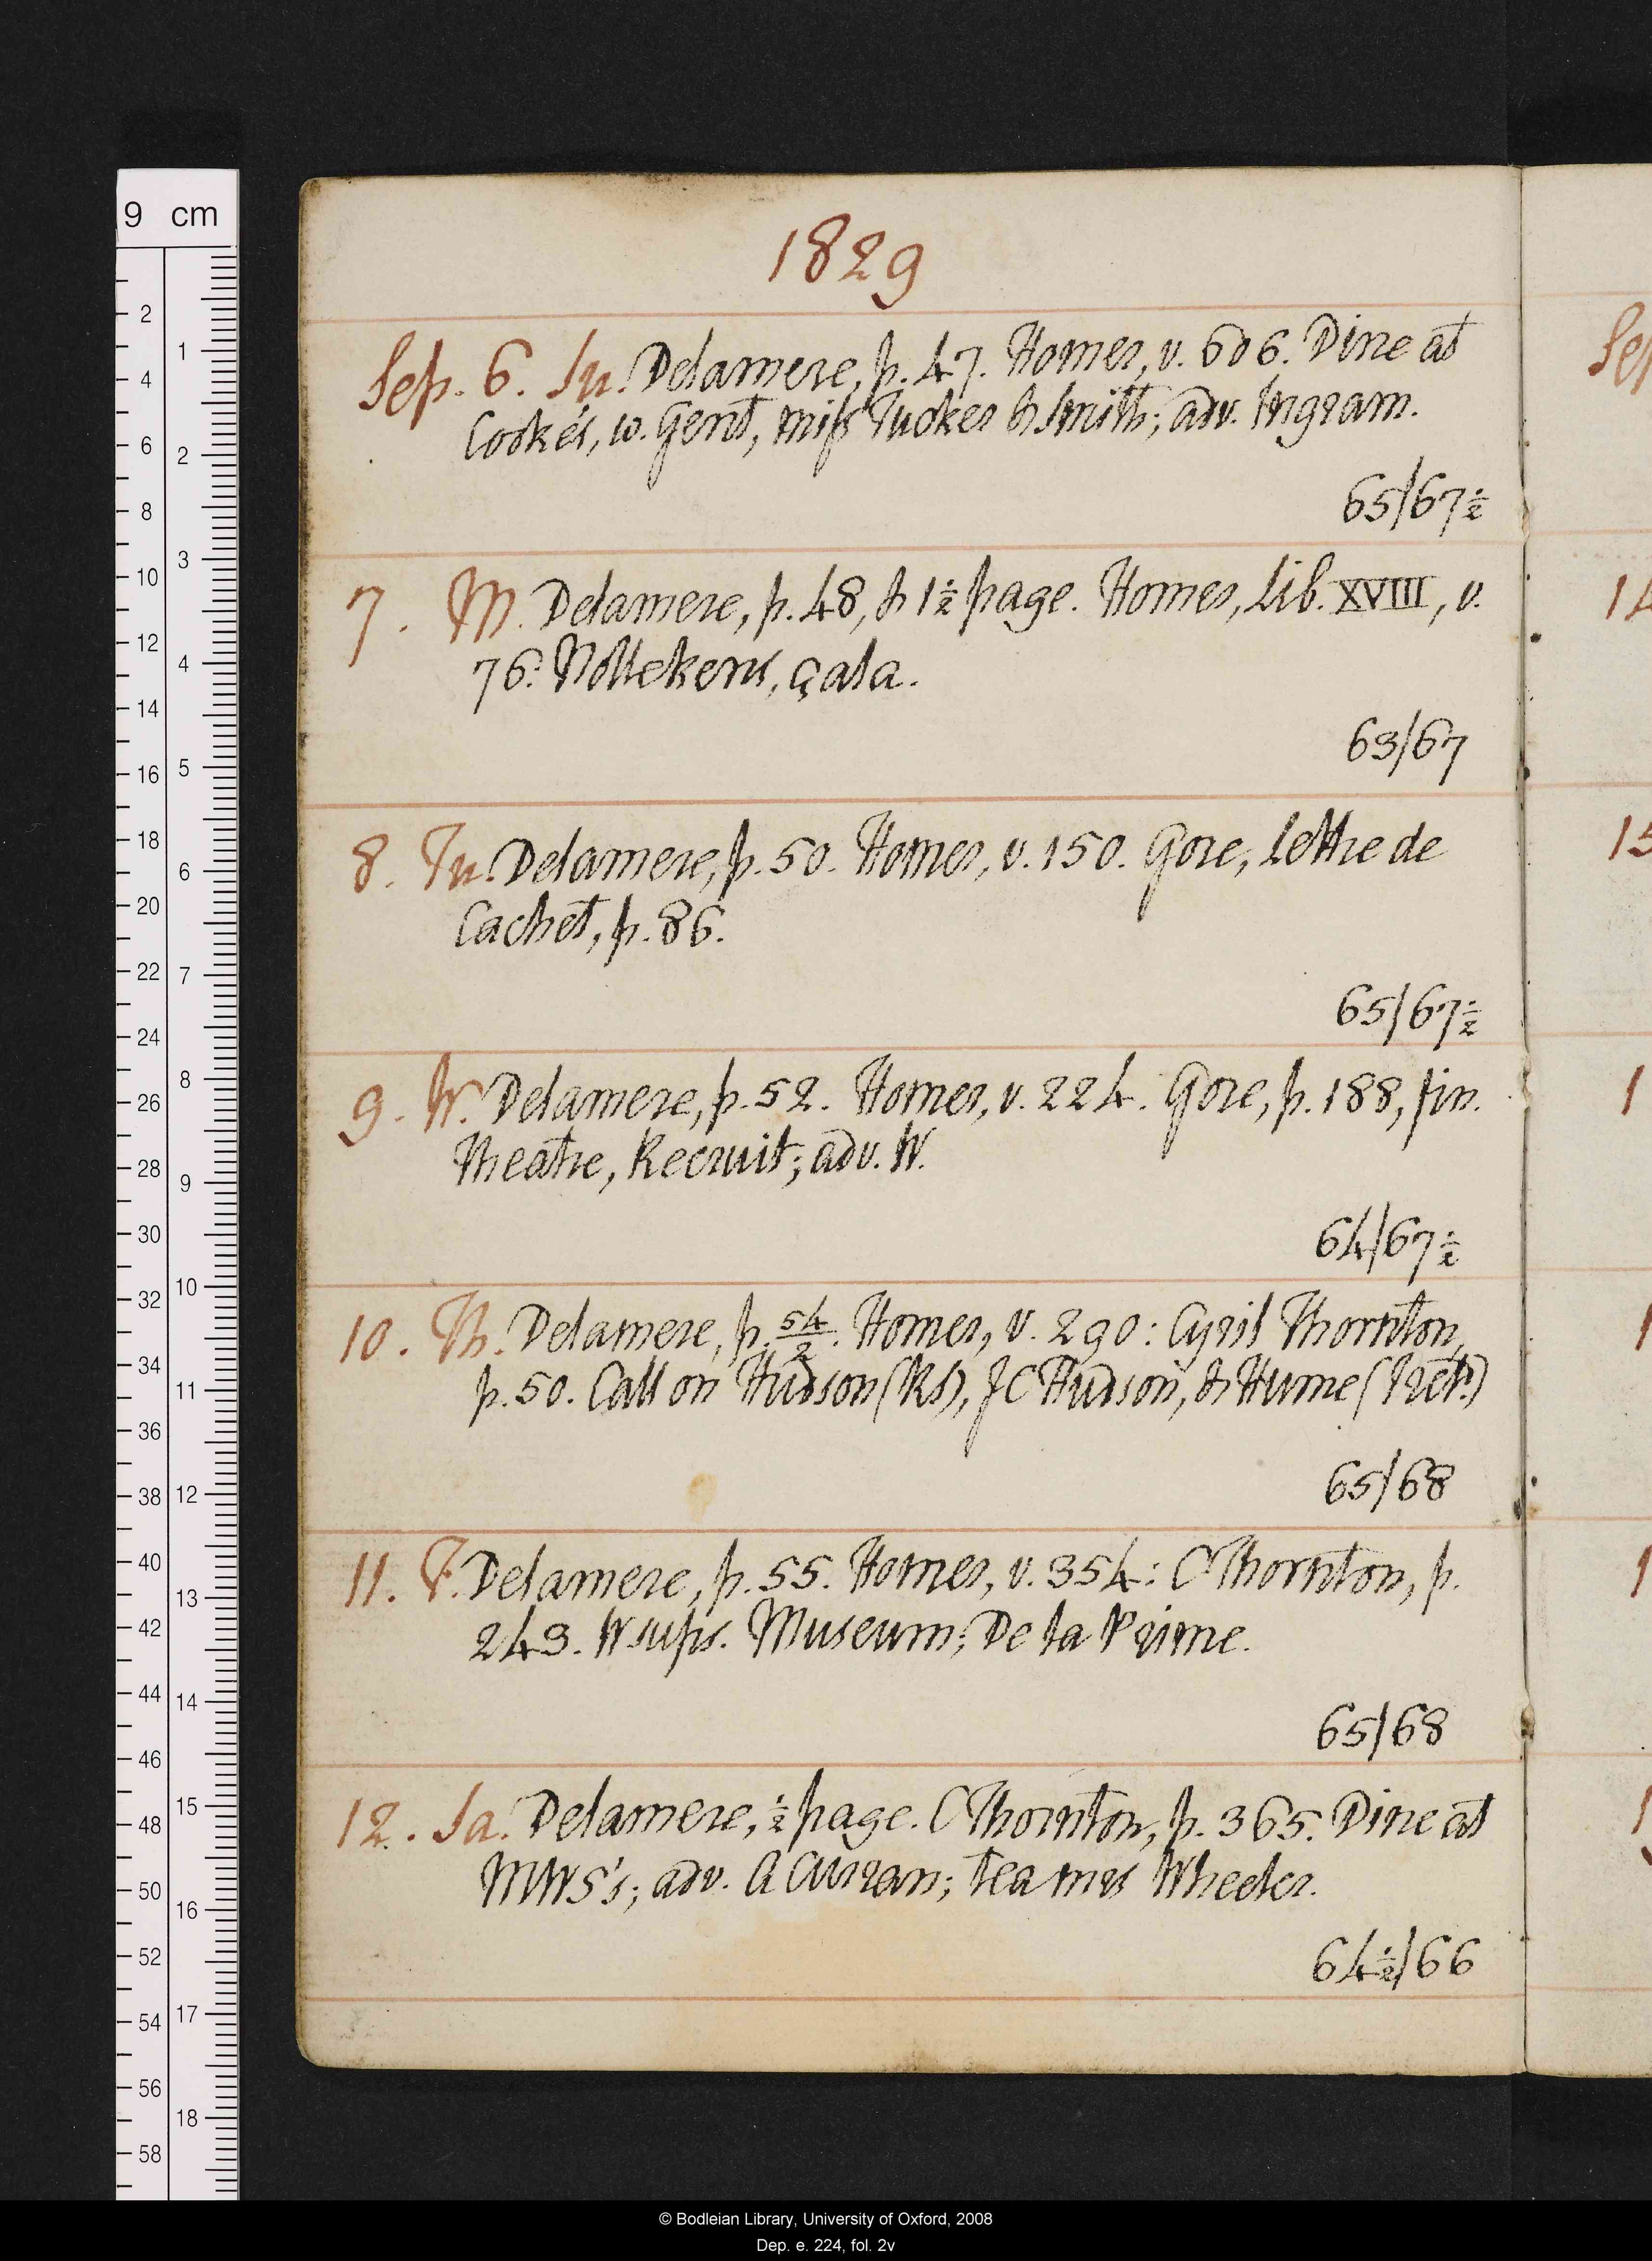 1829
Sep. 6. Su. Delamere, p. 47. Homer, v. 606. Dine at
Cooke's, w. Gent, miss Tucker & Smith; adv. Ingram.
65/67½
7. M. Delamere, p. 48, & 1½ page. Homer, Lib. XVIII, v.
76: Nollekens, çala.
63/67
8. Tu. Delamere, p. 50. Homer, v. 150. Gore, Lettre de
Cachet, p. 86.
65/67½
9. W. Delamere, p. 52. Homer, v. 224. Gore, p. 188, fin.
Theatre, Recruit; adv. W.
64/67½
10. Th. Delamere, p. 54/2. Homer, v. 290: Cyril Thornton,
p. 50. Call on Hudson (RS), J C Hudson, & Hume
65/68
11. F. Delamere, p. 55. Homer, v. 354: C Thornton, p.
243. W sups. Museum; De la Prime.
65/68
12. Sa. Delamere, ½ page. C Thornton, p. 365. Dine at
MWS's; adv. A Curran; tea mrs Wheeler.
64½/66
Sep
14
15
1
1
1
1
9 cm
2
4
6
8
10
12
14
16
18
20
22
24
26
28
30
32
34
36
38
40
42
44
46
48
50
52
54
56
58
1
2
3
4
5
6
7
8
9
10
11
12
13
14
15
16
17
18
© Bodleian Library, University of Oxford, 2008
Dep. e. 224, fol. 2v